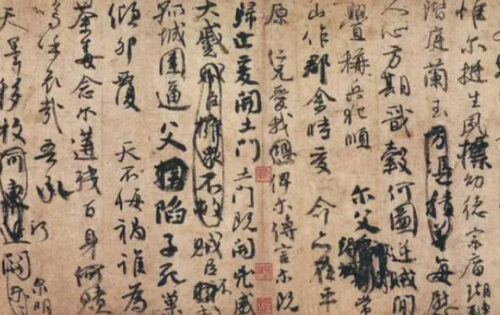 惟爾挺生夙標幼德宗廟瑚璉
階庭蘭玉方憑積善每慰
人心方期戩穀何圖逆賊間
釁稱兵犯順 爾父竭誠常
山作郡余時受 命亦在平
原 仁兄愛我恐俾爾傳言爾既
歸止爰開土門土門既開凶威
大蹙賊臣擁衆不救賊臣不
孤城圍逼父擒陷子死巢
傾卵覆 天不悔禍誰為
荼毒念爾遘殘百身何贖
嗚乎哀哉 吾承
天澤移牧河東近